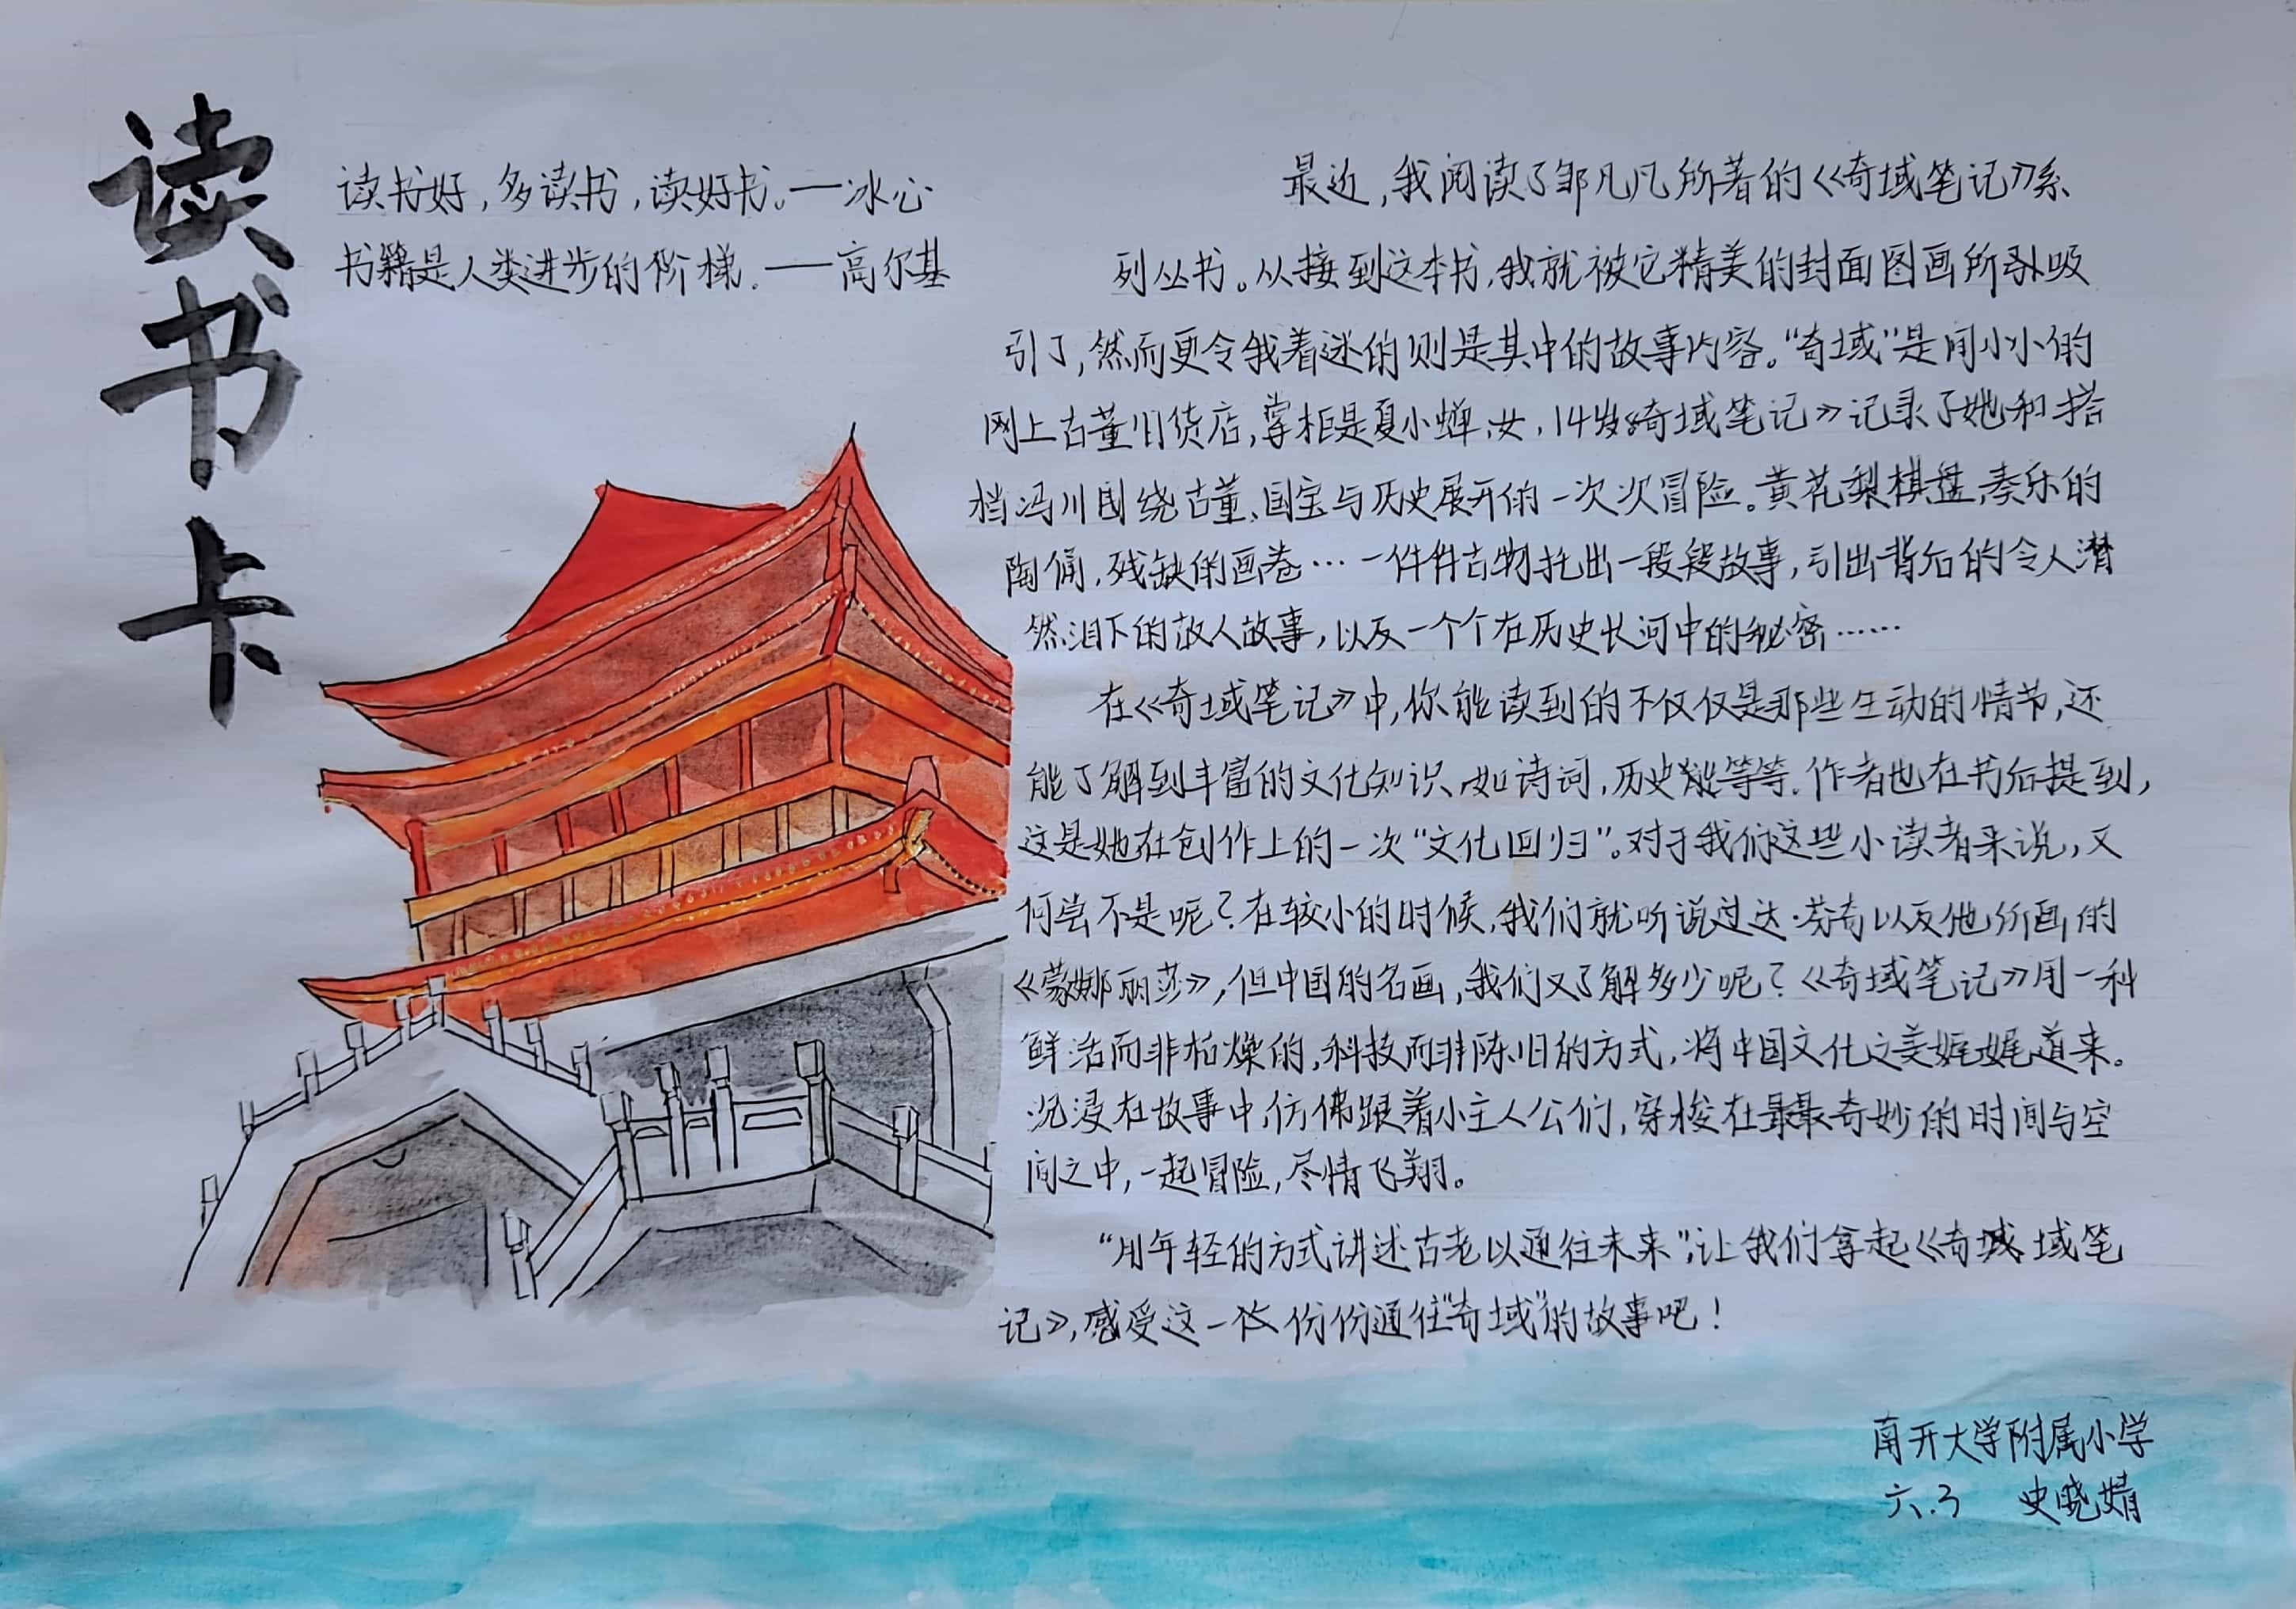 读书卡
读书好，多读书，读好书。——冰心
书籍是人类进步的阶梯.——高尔基
最近，我阅读了邹凡凡所著的《奇域笔记》系
列丛书。从接到这本书，我就被它精美的封面图画所吸
引了，然而更令我着迷的则是其中的故事内容。“奇域”是间小小的
网上古董旧货店，掌柜是夏小蝉，女，14岁《奇域笔记》记录了她和搭
档冯川围绕古董、国宝与历史展开的一次次冒险。黄花梨棋盘，奏乐的
陶俑，残缺的画卷…一件件古物托出一段段故事，引出背后的令人潸
然泪下的故人故事，以及一个个在历史长河中的秘密……
在《奇域笔记》中，你能读到的不仅仅是那些生动的情节，还
能了解到丰富的文化知识、如诗词，历史等等.作者也在书后提到，
这是她在创作上的一次“文化回归”。对于我们这些小读者来说，又
何尝不是呢？在较小的时候，我们就听说过达·芬奇以及他所画的
《蒙娜丽莎》，但中国的名画，我们又了解多少呢？《奇域笔记》用一种
鲜活而非枯燥的，科技而非陈旧的方式，将中国文化之美娓娓道来。
沉浸在故事中，仿佛跟着小主人公们，穿梭在最最奇妙的时间与空
间之中，一起冒险，尽情飞翔。
“用年轻的方式讲述古老以通往未来”，让我们拿起《奇域笔
记》，感受这一份份通往“奇域”的故事吧！
南开大学附属小学
六.3 史晓婧